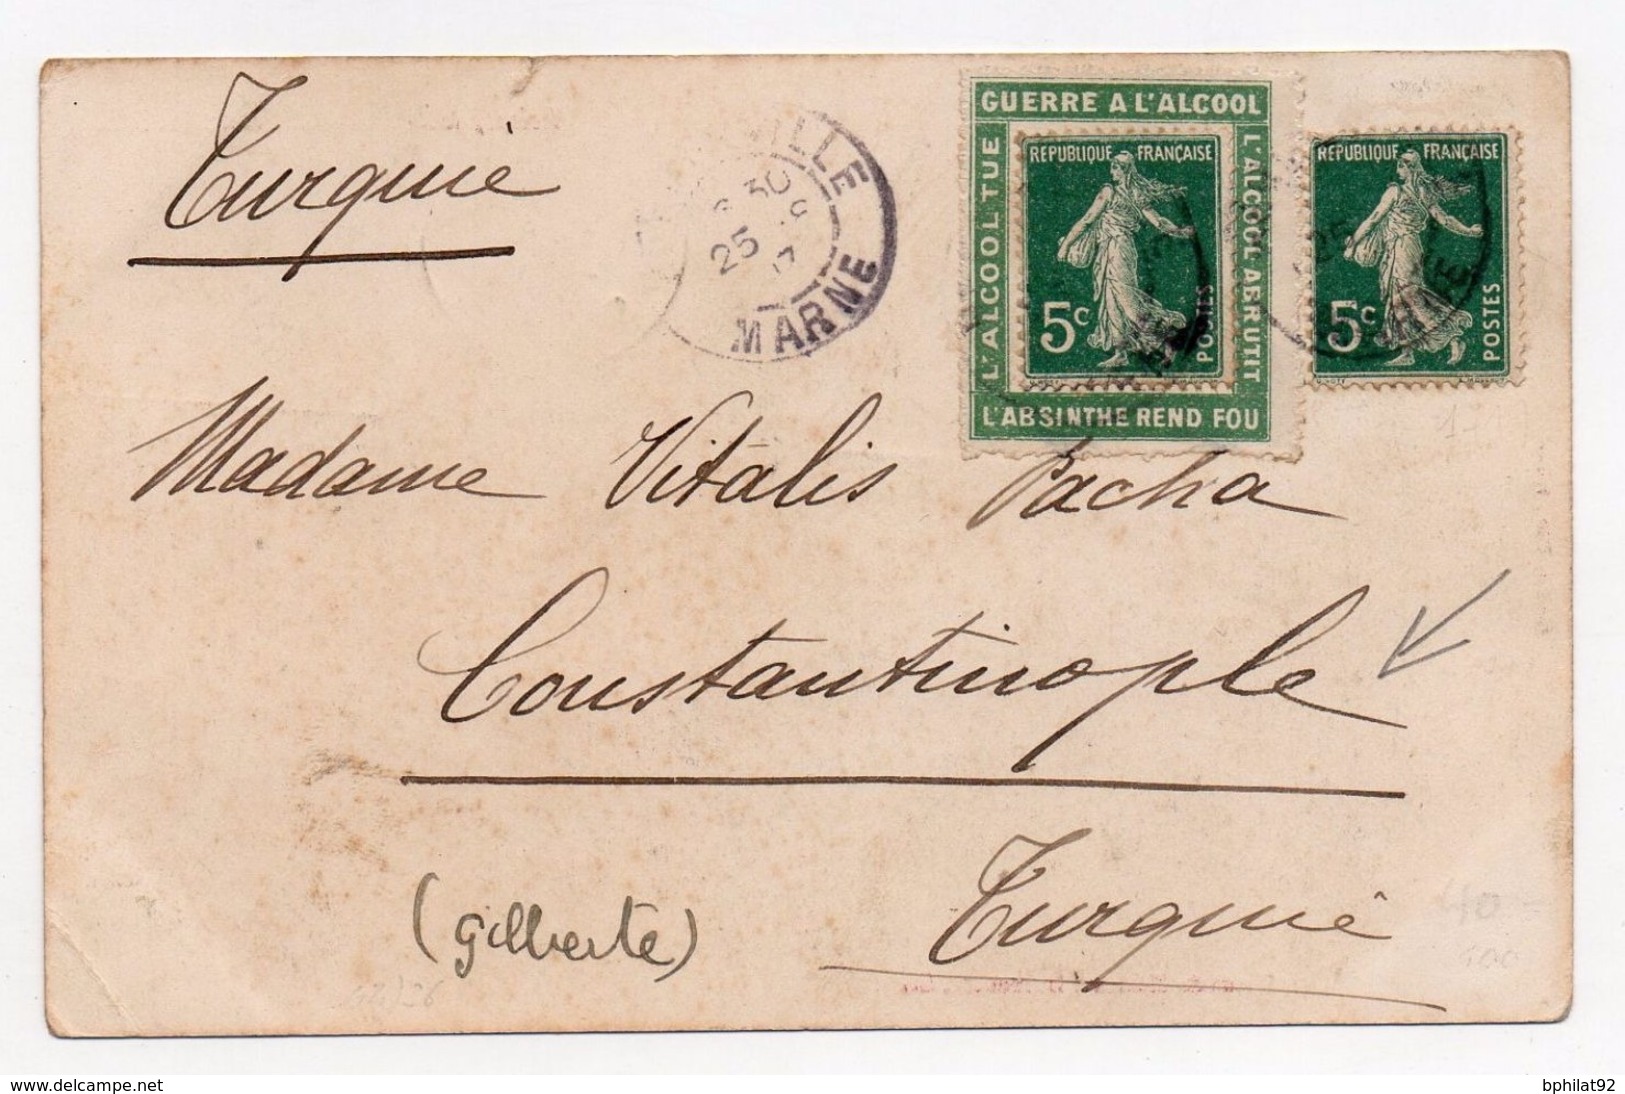 Turquie
VILLE
30
25
MARNE
GUERRE A L'ALCOOL
L'ALCOOL TUE
L'ALCOOL ABRUTIT
L'ABSINTHE REND FOU
REPUBLIQUE FRANÇAISE
5c
POSTES
REPUBLIQUE FRANÇAISE
5c
POSTES
Madame Vitalis Pacha
Constantinople
Turquie
(Gilberte)
40
www.delcampe.net
bphilat92